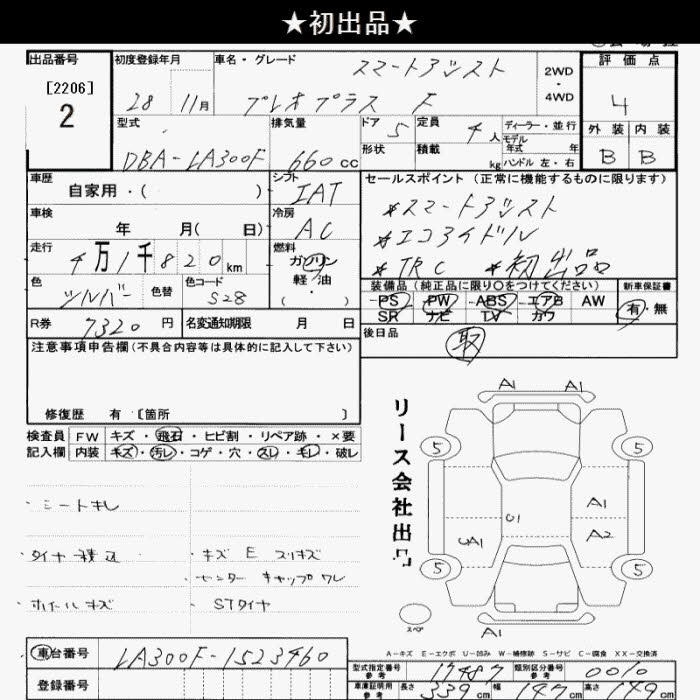 ★初出品★
出品番号
[2206]
2
初度登録年月
28 11月
車名・グレード
スマートアシスト
プレオプラス F
2WD
・
4WD
評価点
4
外装 内装
B B
型式
DBA-LA300F
排気量
660cc
ドア 5
形状
定員 4人
積載 kg
ディーラー・並行
モデル年式 年
ハンドル 左・右
車歴
自家用・( )
シフト
IAT
車検
年 月( 日)
冷房
AC
走行
4万1千820km
燃料
ガソリン
軽・油
( ・ )
色
シルバー
色替
色コード
S28
R券 7320円
名変通知期限 月 日
セールスポイント(正常に機能するものに限ります)
*スマートアシスト
*エコアイドル
*TRC *初出品
装備品(純正品に限り○をつけてください)
新車保証書
PS PW ABS エアB AW
SR ナビ TV カワ
有・無
後日品
取
注意事項申告欄(不具合内容等は具体的に記入して下さい)
修復歴 有 〔箇所 〕
検査員
記入欄
FW キズ・飛石・ヒビ割・リペア跡・×要
内装 キズ・汚レ・コゲ・穴・スレ・キレ・破レ
・シートキレ
・タイヤ積込
・キズ E スリキズ
・センターキャップワレ
・ホイールキズ
・STタイヤ
リース会社出品
A1 A1
5 5
A1
U1
UA1
A2
5 5
スペア
A1
A-キズ E-エクボ U-凹み W-補修跡 S-サビ C-腐食 XX-交換済
車台番号
LA300F-1523460
登録番号
型式指定番号
参考
17487
類別区分番号
参考
0010
車庫証明用
参考
長さ 339cm 幅 147cm 高さ 149cm